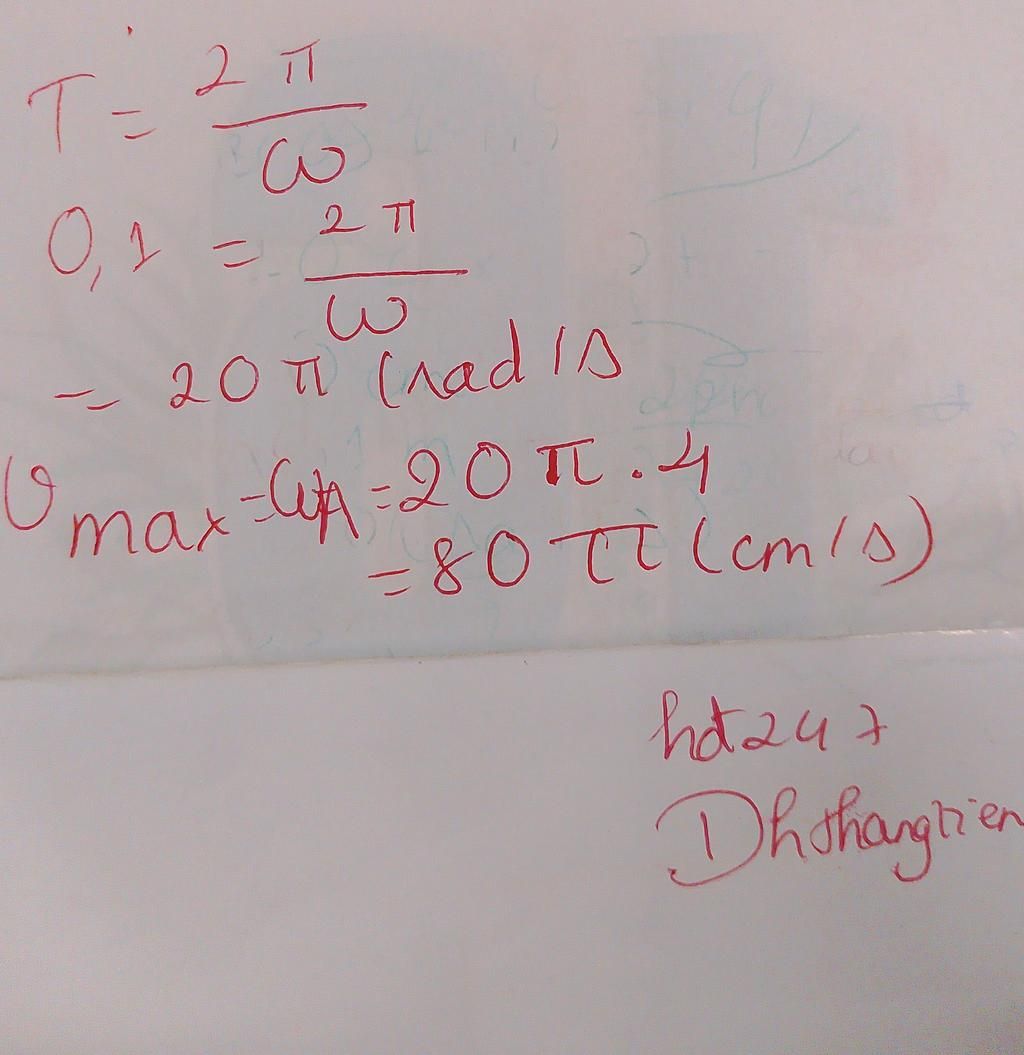 T = 2π/ω
0,1 = 2π/ω
= 20π (rad/s
vmax = ωA = 20π.4
= 80π (cm/s)
hdt247
Dhthangtien